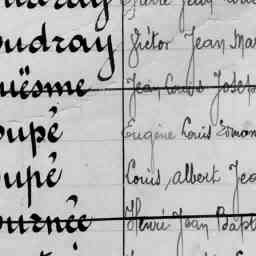 oudray Victor Jean Mar
uësme Jean Louis Josep
oupé Eugène Louis
oupé Louis, albert Jea
ournée Henri Jean Bapt